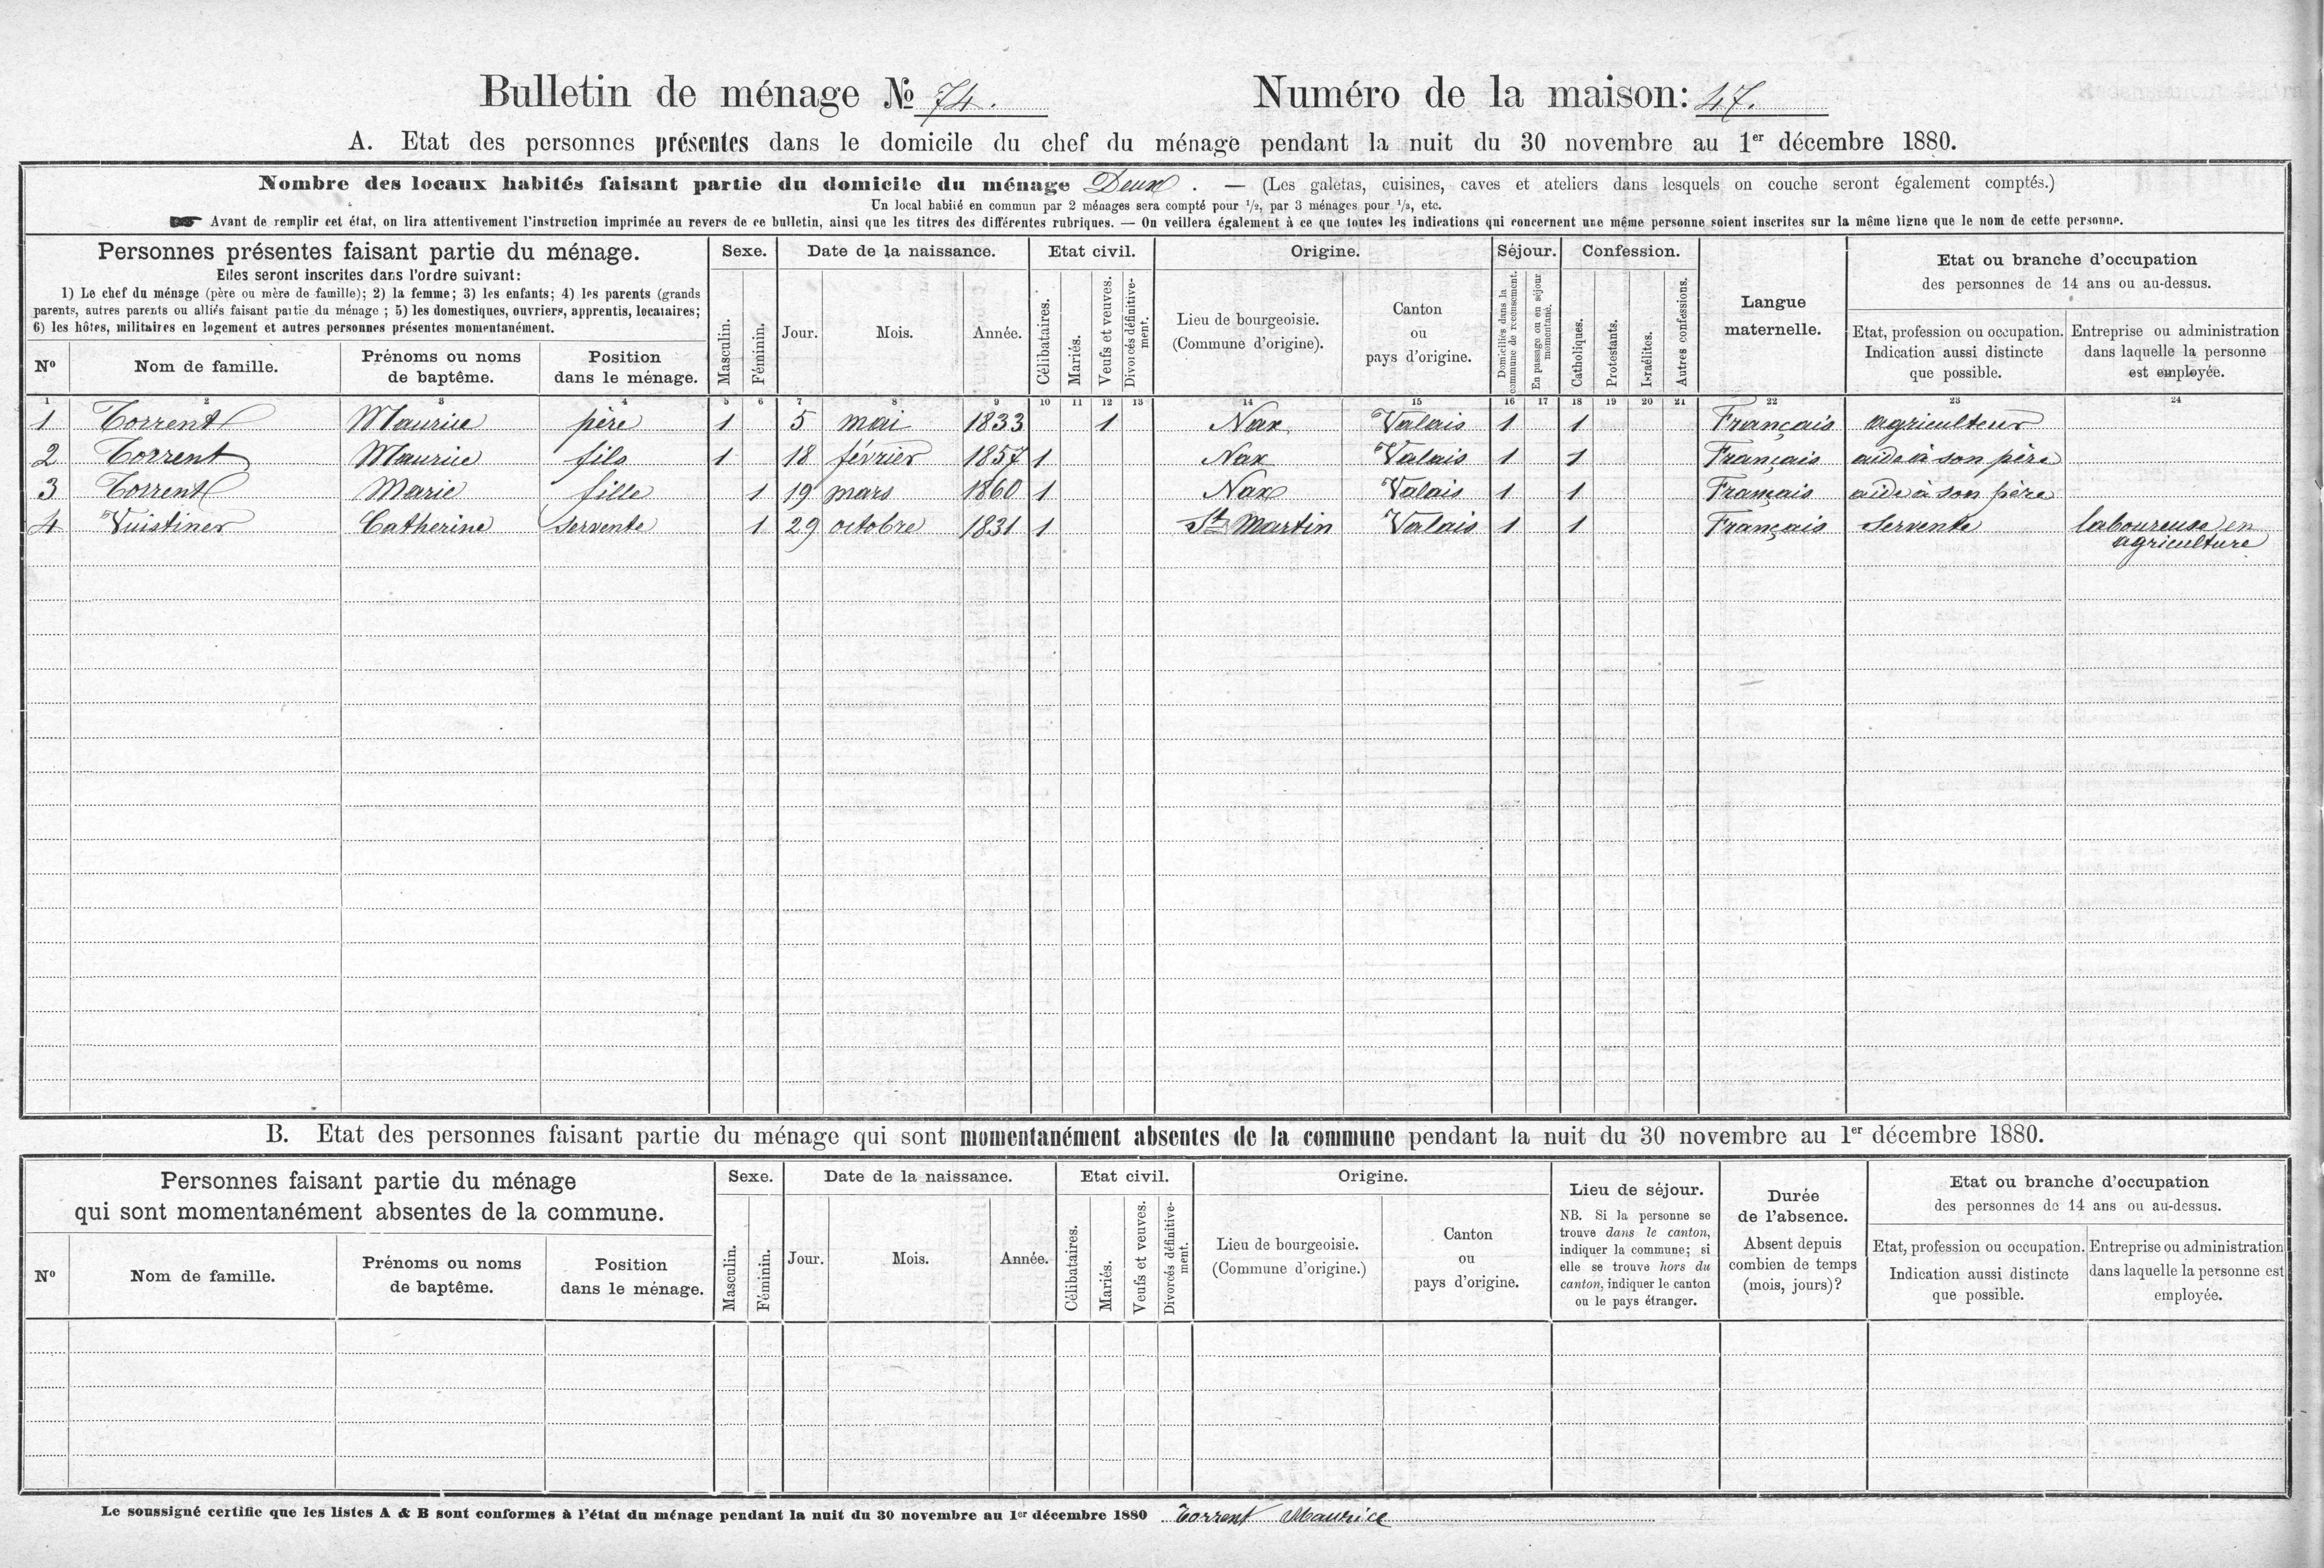 Bulletin de ménage № 74. Numéro de la maison: 47.
A. Etat des personnes présentes dans le domicile du chef du ménage pendant la nuit du 30 novembre au 1er décembre 1880.
Nombre des locaux habités faisant partie du domicile du ménage Deux. — (Les galetas, cuisines, caves et ateliers dans lesquels on couche seront également comptés.)
Un local habité en commun par 2 ménages sera compté pour 1/2, par 3 ménages pour 1/3, etc.
Avant de remplir cet état, on lira attentivement l'instruction imprimée au revers de ce bulletin, ainsi que les titres des différentes rubriques. — On veillera également à ce que toutes les indications qui concernent une même personne soient inscrites sur la même ligne que le nom de cette personne.
Personnes présentes faisant partie du ménage.
Elles seront inscrites dans l'ordre suivant:
1) Le chef du ménage (père ou mère de famille); 2) la femme; 3) les enfants; 4) les parents (grands
parents, autres parents ou alliés faisant partie du ménage ; 5) les domestiques, ouvriers, apprentis, locataires;
6) les hôtes, militaires en logement et autres personnes présentes momentanément.
Nº
Nom de famille.
Prénoms ou noms
de baptême.
Position
dans le ménage.
Sexe.
Masculin.
Féminin.
Date de la naissance.
Jour.
Mois.
Année.
Etat civil.
Célibataires.
Mariés.
Veufs et veuves.
Divorcés définitive-
ment.
Origine.
Lieu de bourgeoisie.
(Commune d'origine).
Canton
ou
pays d'origine.
Séjour.
Domiciliés dans la
commune de recensement.
En passage ou en séjour
momentané.
Confession.
Catholiques.
Protestants.
Israélites.
Autres confessions.
Langue
maternelle.
Etat ou branche d'occupation
des personnes de 14 ans ou au-dessus.
Etat, profession ou occupation.
Indication aussi distincte
que possible.
Entreprise ou administration
dans laquelle la personne
est employée.
1 2 3 4 5 6 7 8 9 10 11 12 13 14 15 16 17 18 19 20 21 22 23 24
1 Torrent Maurice père 1 5 mai 1833 1 Nax Valais 1 1 Français agriculteur
2 Torrent Maurice fils 1 18 février 1857 1 Nax Valais 1 1 Français aide à son père
3 Torrent Marie fille 1 19 mars 1860 1 Nax Valais 1 1 Français aide à son père
4 Vuistiner Catherine servente 1 29 octobre 1831 1 St Martin Valais 1 1 Français servente laboureuse en
agriculture
B. Etat des personnes faisant partie du ménage qui sont momentanément absentes de la commune pendant la nuit du 30 novembre au 1er décembre 1880.
Personnes faisant partie du ménage
qui sont momentanément absentes de la commune.
Nº
Nom de famille.
Prénoms ou noms
de baptême.
Position
dans le ménage.
Sexe.
Masculin.
Féminin.
Date de la naissance.
Jour.
Mois.
Année.
Etat civil.
Célibataires.
Mariés.
Veufs et veuves.
Divorcés définitive-
ment.
Origine.
Lieu de bourgeoisie.
(Commune d'origine.)
Canton
ou
pays d'origine.
Lieu de séjour.
NB. Si la personne se
trouve dans le canton,
indiquer la commune; si
elle se trouve hors du
canton, indiquer le canton
ou le pays étranger.
Durée
de l'absence.
Absent depuis
combien de temps
(mois, jours)?
Etat ou branche d'occupation
des personnes de 14 ans ou au-dessus.
Etat, profession ou occupation.
Indication aussi distincte
que possible.
Entreprise ou administration
dans laquelle la personne est
employée.
Le soussigné certifie que les listes A & B sont conformes à l'état du ménage pendant la nuit du 30 novembre au 1er décembre 1880 Torrent Maurice